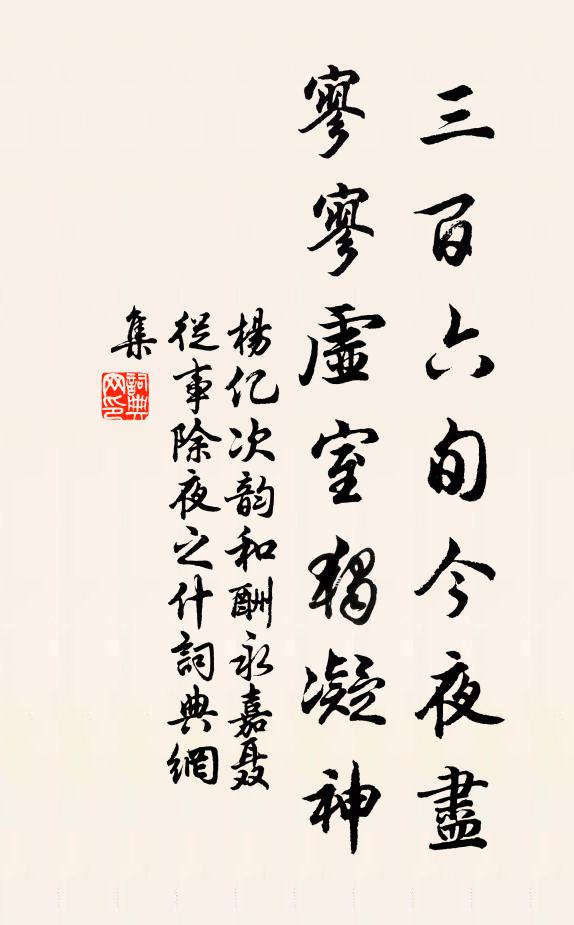 三百六旬今夜盡
寥寥虛室獨凝神
楊亿次韵和酬永嘉聂
從事除夜之什詞典網
集
詞典网印